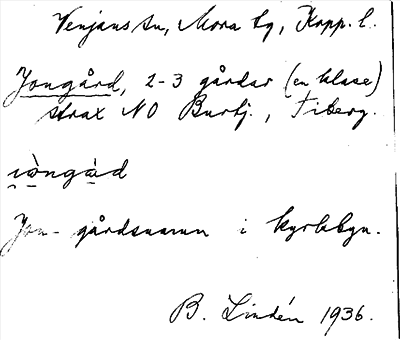 Venjans sn, Mora tg, Kopp. l.
Jongård, 2-3 gårdar (en klase)
strax NO Burtj., Tiberg.
Jon- gårdsnamn i kyrkbyn.
B. Lindén 1936.